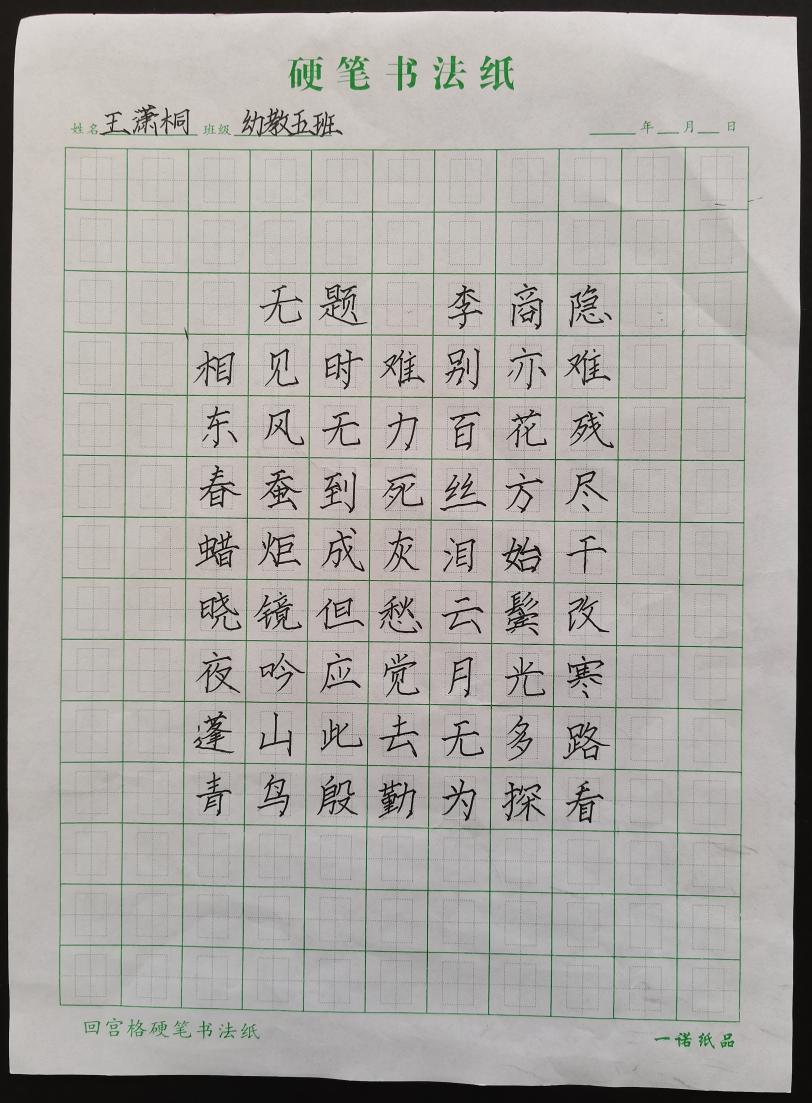 硬笔书法纸
姓名 王潇桐 班级 幼教五班 年 月 日
无题 李商隐
相见时难别亦难
东风无力百花残
春蚕到死丝方尽
蜡炬成灰泪始干
晓镜但愁云鬓改
夜吟应觉月光寒
蓬山此去无多路
青鸟殷勤为探看
回宫格硬笔书法纸 一诺纸品